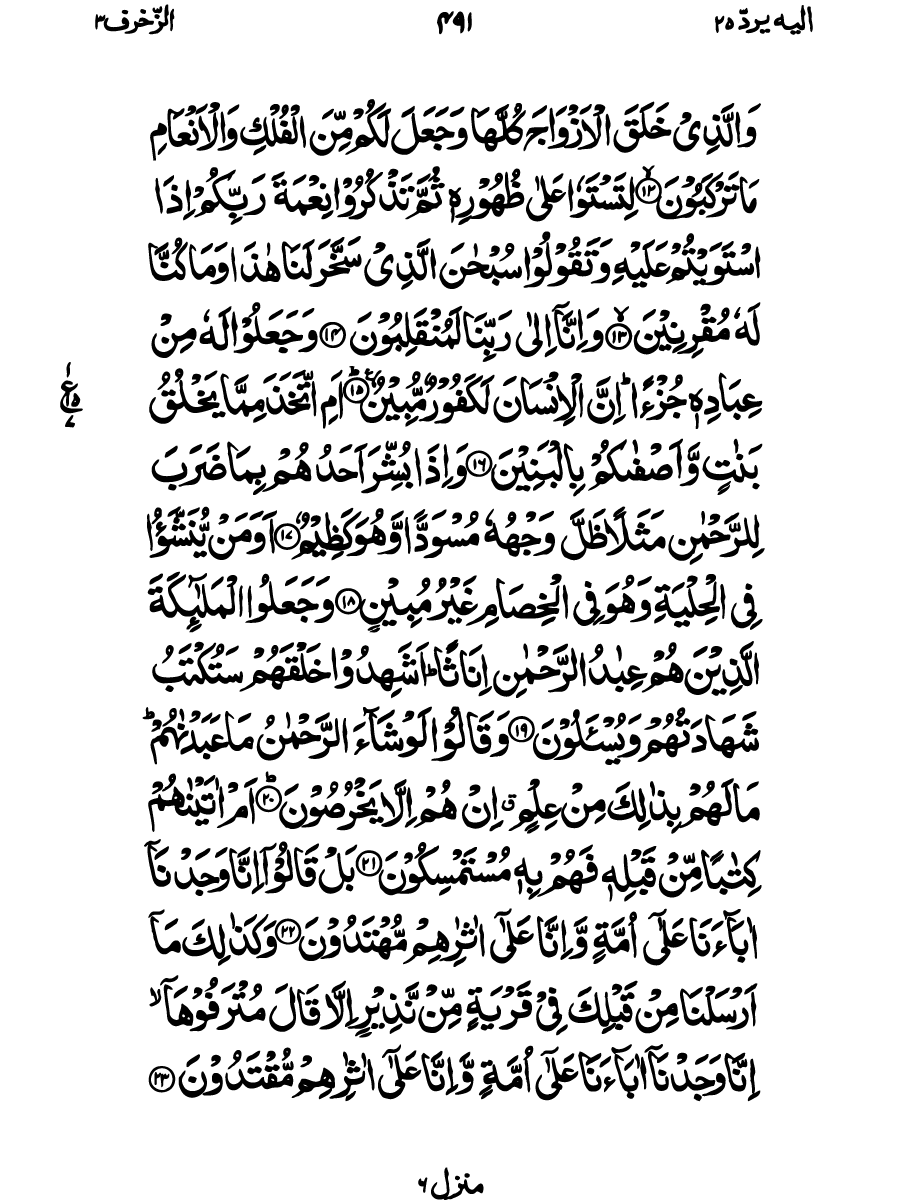 الیه یردّ ۲۵
۴۹۱
الزّخرف ۳
وَالَّذِیْ خَلَقَ الْاَزْوَاجَ كُلَّهَا وَجَعَلَ لَكُمْ مِّنَ الْفُلْكِ وَالْاَنْعَامِ
مَا تَرْكَبُوْنَ ۙ‏﴿۱۲﴾ لِتَسْتَوٗا عَلٰی ظُهُوْرِهٖ ثُمَّ تَذْكُرُوْا نِعْمَةَ رَبِّكُمْ اِذَا
اسْتَوَیْتُمْ عَلَیْهِ وَتَقُوْلُوْا سُبْحٰنَ الَّذِیْ سَخَّرَ لَنَا هٰذَا وَمَا كُنَّا
لَهٗ مُقْرِنِیْنَ ۙ﴿۱۳﴾ وَاِنَّاۤ اِلٰی رَبِّنَا لَمُنْقَلِبُوْنَ ﴿۱۴﴾ وَجَعَلُوْا لَهٗ مِنْ
عِبَادِهٖ جُزْءًا ؕ اِنَّ الْاِنْسَانَ لَكَفُوْرٌ مُّبِیْنٌ ؕ۠﴿۱۵﴾ اَمِ اتَّخَذَ مِمَّا یَخْلُقُ
ع ۱۵ ۷
بَنٰتٍ وَّاَصْفٰىكُمْ بِالْبَنِیْنَ ﴿۱۶﴾ وَاِذَا بُشِّرَ اَحَدُهُمْ بِمَا ضَرَبَ
لِلرَّحْمٰنِ مَثَلًا ظَلَّ وَجْهُهٗ مُسْوَدًّا وَّهُوَ كَظِیْمٌ ﴿۱۷﴾ اَوَمَنْ یُّنَشَّؤُا
فِی الْحِلْیَةِ وَهُوَ فِی الْخِصَامِ غَیْرُ مُبِیْنٍ ﴿۱۸﴾ وَجَعَلُوا الْمَلٰٓئِكَةَ
الَّذِیْنَ هُمْ عِبٰدُ الرَّحْمٰنِ اِنَاثًا ؕ اَشَهِدُوْا خَلْقَهُمْ سَتُكْتَبُ
شَهَادَتُهُمْ وَیُسْـَٔلُوْنَ ﴿۱۹﴾ وَقَالُوْا لَوْ شَآءَ الرَّحْمٰنُ مَا عَبَدْنٰهُمْ ؕ
مَا لَهُمْ بِذٰلِكَ مِنْ عِلْمٍ ۗ اِنْ هُمْ اِلَّا یَخْرُصُوْنَ ؕ﴿۲۰﴾ اَمْ اٰتَیْنٰهُمْ
كِتٰبًا مِّنْ قَبْلِهٖ فَهُمْ بِهٖ مُسْتَمْسِكُوْنَ ﴿۲۱﴾ بَلْ قَالُوْۤا اِنَّا وَجَدْنَاۤ
اٰبَآءَنَا عَلٰۤی اُمَّةٍ وَّاِنَّا عَلٰۤی اٰثٰرِهِمْ مُّهْتَدُوْنَ ﴿۲۲﴾ وَكَذٰلِكَ مَاۤ
اَرْسَلْنَا مِنْ قَبْلِكَ فِیْ قَرْیَةٍ مِّنْ نَّذِیْرٍ اِلَّا قَالَ مُتْرَفُوْهَاۤ ۙ
اِنَّا وَجَدْنَاۤ اٰبَآءَنَا عَلٰۤی اُمَّةٍ وَّاِنَّا عَلٰۤی اٰثٰرِهِمْ مُّقْتَدُوْنَ ﴿۲۳﴾
منزل ۶